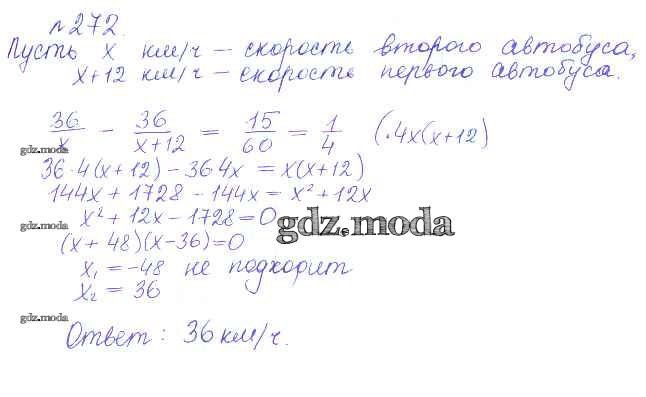 №272.
Пусть x км/ч – скорость второго автобуса,
x+12 км/ч – скорость первого автобуса.
36/x – 36/(x+12) = 15/60 = 1/4 (·4x(x+12)
gdz.moda
36·4(x+12) – 36 4x = x(x+12)
144x + 1728 – 144x = x² + 12x
x² + 12x – 1728 = 0
gdz.moda
gdz.moda
(x + 48)(x – 36) = 0
x₁ = –48 не подходит
x₂ = 36
gdz.moda
Ответ: 36 км/ч.